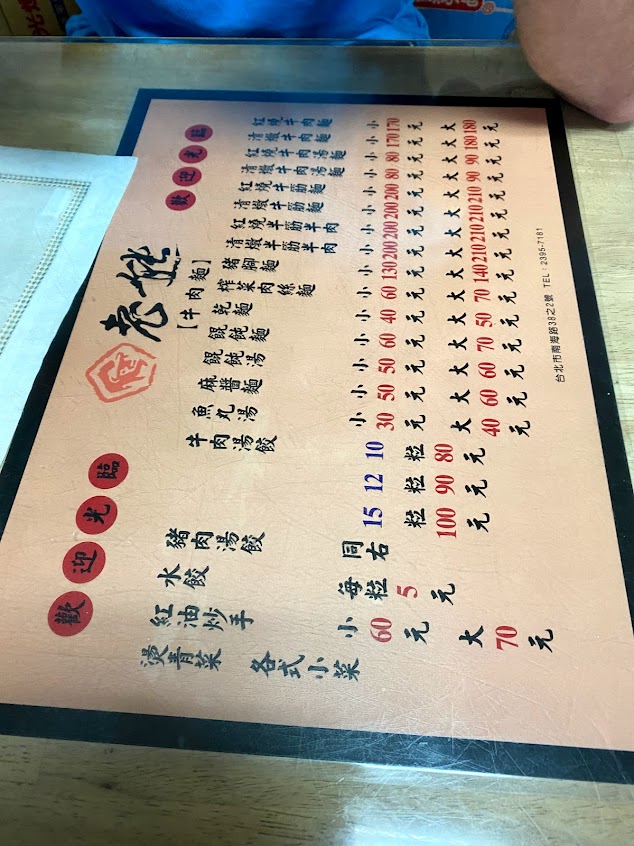 歡迎光臨
老熊
【牛肉麵】
紅燒牛肉麵 小170元 大180元
清燉牛肉麵 小170元 大180元
紅燒牛肉湯麵 小80元 大90元
清燉牛肉湯麵 小80元 大90元
紅燒牛筋麵 小200元 大210元
清燉牛筋麵 小200元 大210元
紅燒半筋半肉 小200元 大210元
清燉半筋半肉 小200元 大210元
豬腳麵 小130元 大140元
榨菜肉絲麵 小60元 大70元
乾麵 小40元 大50元
餛飩麵 小60元 大70元
餛飩湯 小50元 大60元
麻醬麵 小50元 大60元
魚丸湯 小30元 大40元
牛肉湯餃 10粒80元
12粒90元
15粒100元
豬肉湯餃 同右
水餃 每粒5元
紅油炒手 小60元 大70元
燙青菜
各式小菜
歡迎光臨
台北市南海路38之2號 TEL：2395-7181